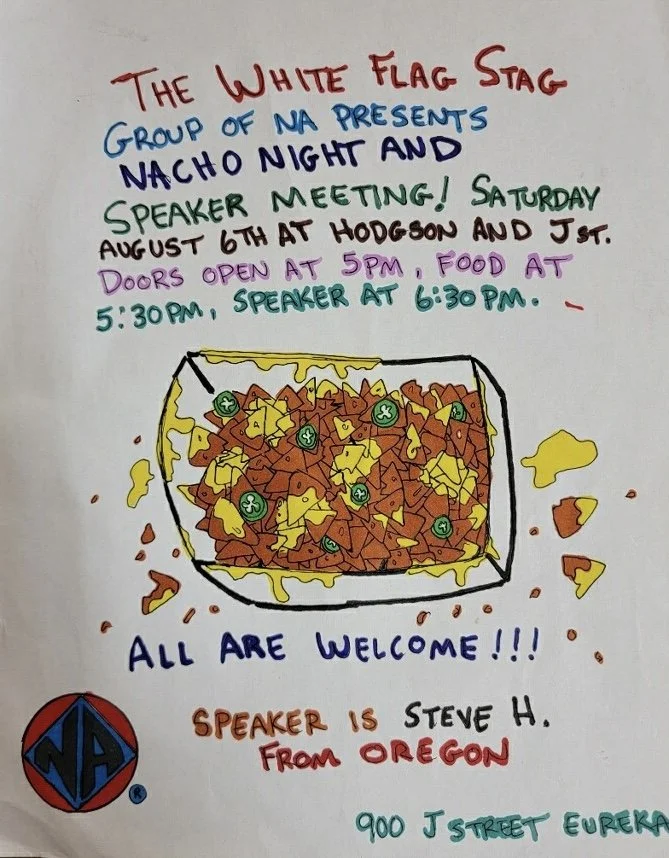 THE WHITE FLAG STAG
GROUP OF NA PRESENTS
NACHO NIGHT AND
SPEAKER MEETING! SATURDAY
AUGUST 6TH AT HODGSON AND J ST.
DOORS OPEN AT 5PM, FOOD AT
5:30PM, SPEAKER AT 6:30PM.
ALL ARE WELCOME!!!
SPEAKER IS STEVE H.
FROM OREGON
NA
®
900 J STREET EUREKA